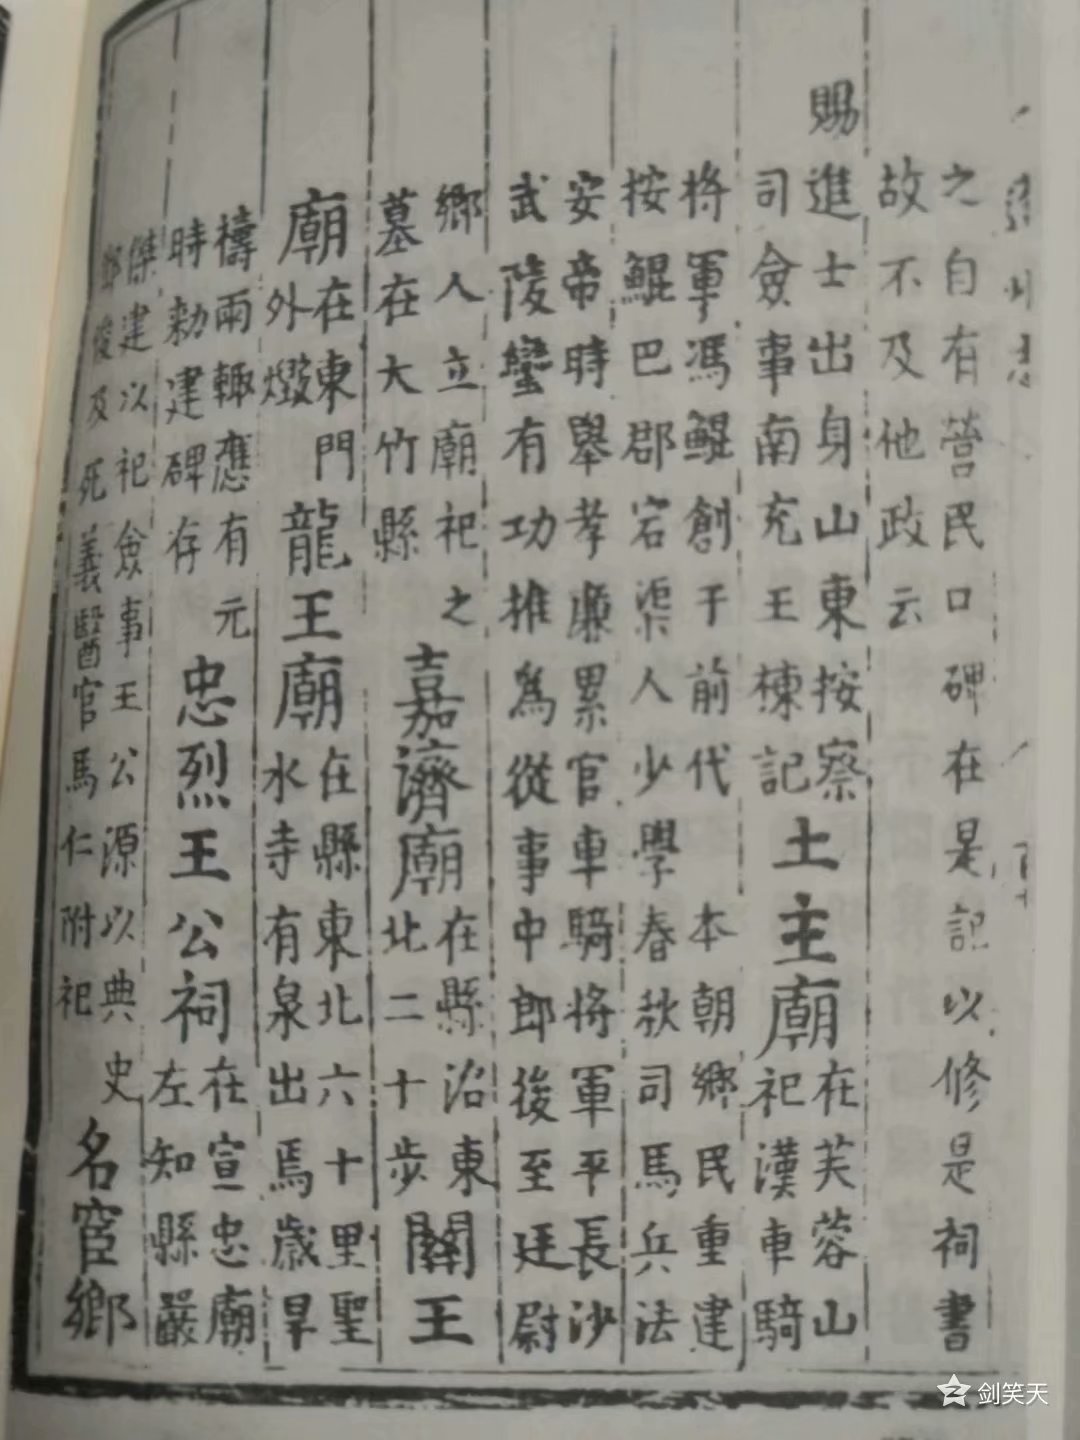 之自有營民口碑在是記以修是祠書
故不及他政云
賜進士出身山東按察
司僉事南充王棟記
土主廟
在芙蓉山
祀漢車騎
將軍馮鯤創于前代 本朝鄉民重建
按鯤巴郡宕渠人少學春秋司馬兵法
安帝時舉孝廉累官車騎將軍平長沙
武陵蠻有功推為從事中郎後至廷尉
鄉人立廟祀之
墓在大竹縣
嘉濟廟
在縣治東
北二十步
關王
廟
在東門
外燬
龍王廟
在縣東北六十里聖
水寺有泉出焉歲旱
禱雨輙應有元
時勅建碑存
忠烈王公祠
在宣忠廟
左知縣嚴
傑建以祀僉事王公源以典史
及死義醫官馬仁附祀
名宦鄉
剑笑天